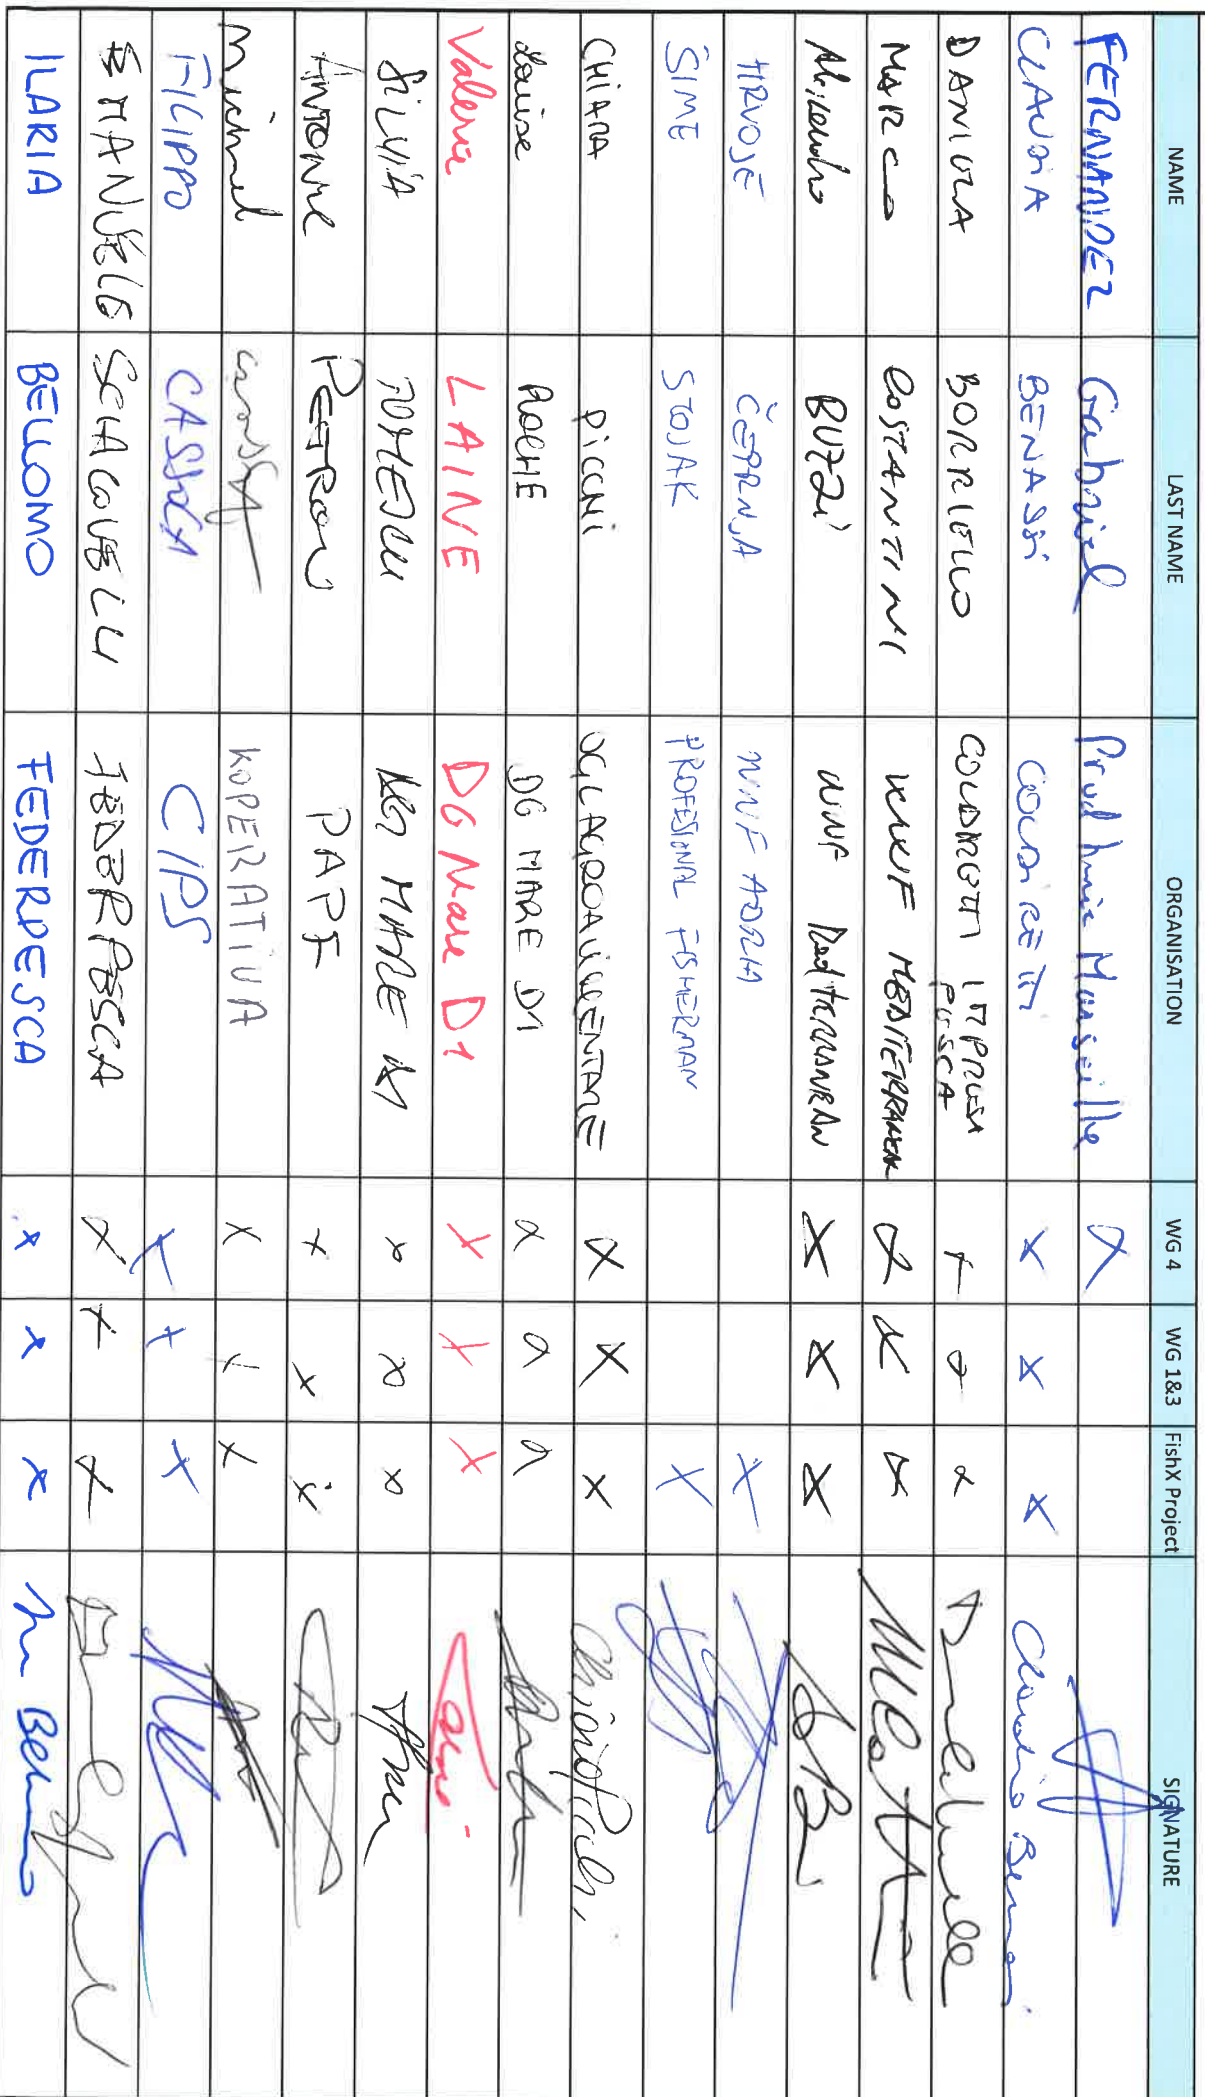 NAME LAST NAME ORGANISATION WG 4 WG 1&3 FishX Project SIGNATURE
FERNANDEZ Gabriel Prud'homie Marseille X
CLAUDIA BENASSI COLDIRETTI X X X Claudia Benassi
DANIELA BORRIELLO COLDIRETTI IMPRESA PESCA X X X
MARCO COSTANTINI WWF MEDITERRANEAN X X X
Alessandro BUZZI WWF Mediterranean X X X
HRVOJE ČEPRNJA WWF ADRIA X
ŠIME STOJAK PROFESIONAL FISHERMAN X
CHIARA PICCHI UCILAGROALIMENTARE X X X Chiara Picchi
Louise ROCHE DG MARE D1 X X X
Valerie LAINE DG Mare D1 X X X
SILVIA DG MARE D1 X X X
ANTOINE PETRON PAPF X X X
Michael KOPERATIVA X X X
FILIPPO CIPS X X X
EMANUELE SCIACOVELLI FEDERPESCA X X X
ILARIA BELLOMO FEDERPESCA X X X